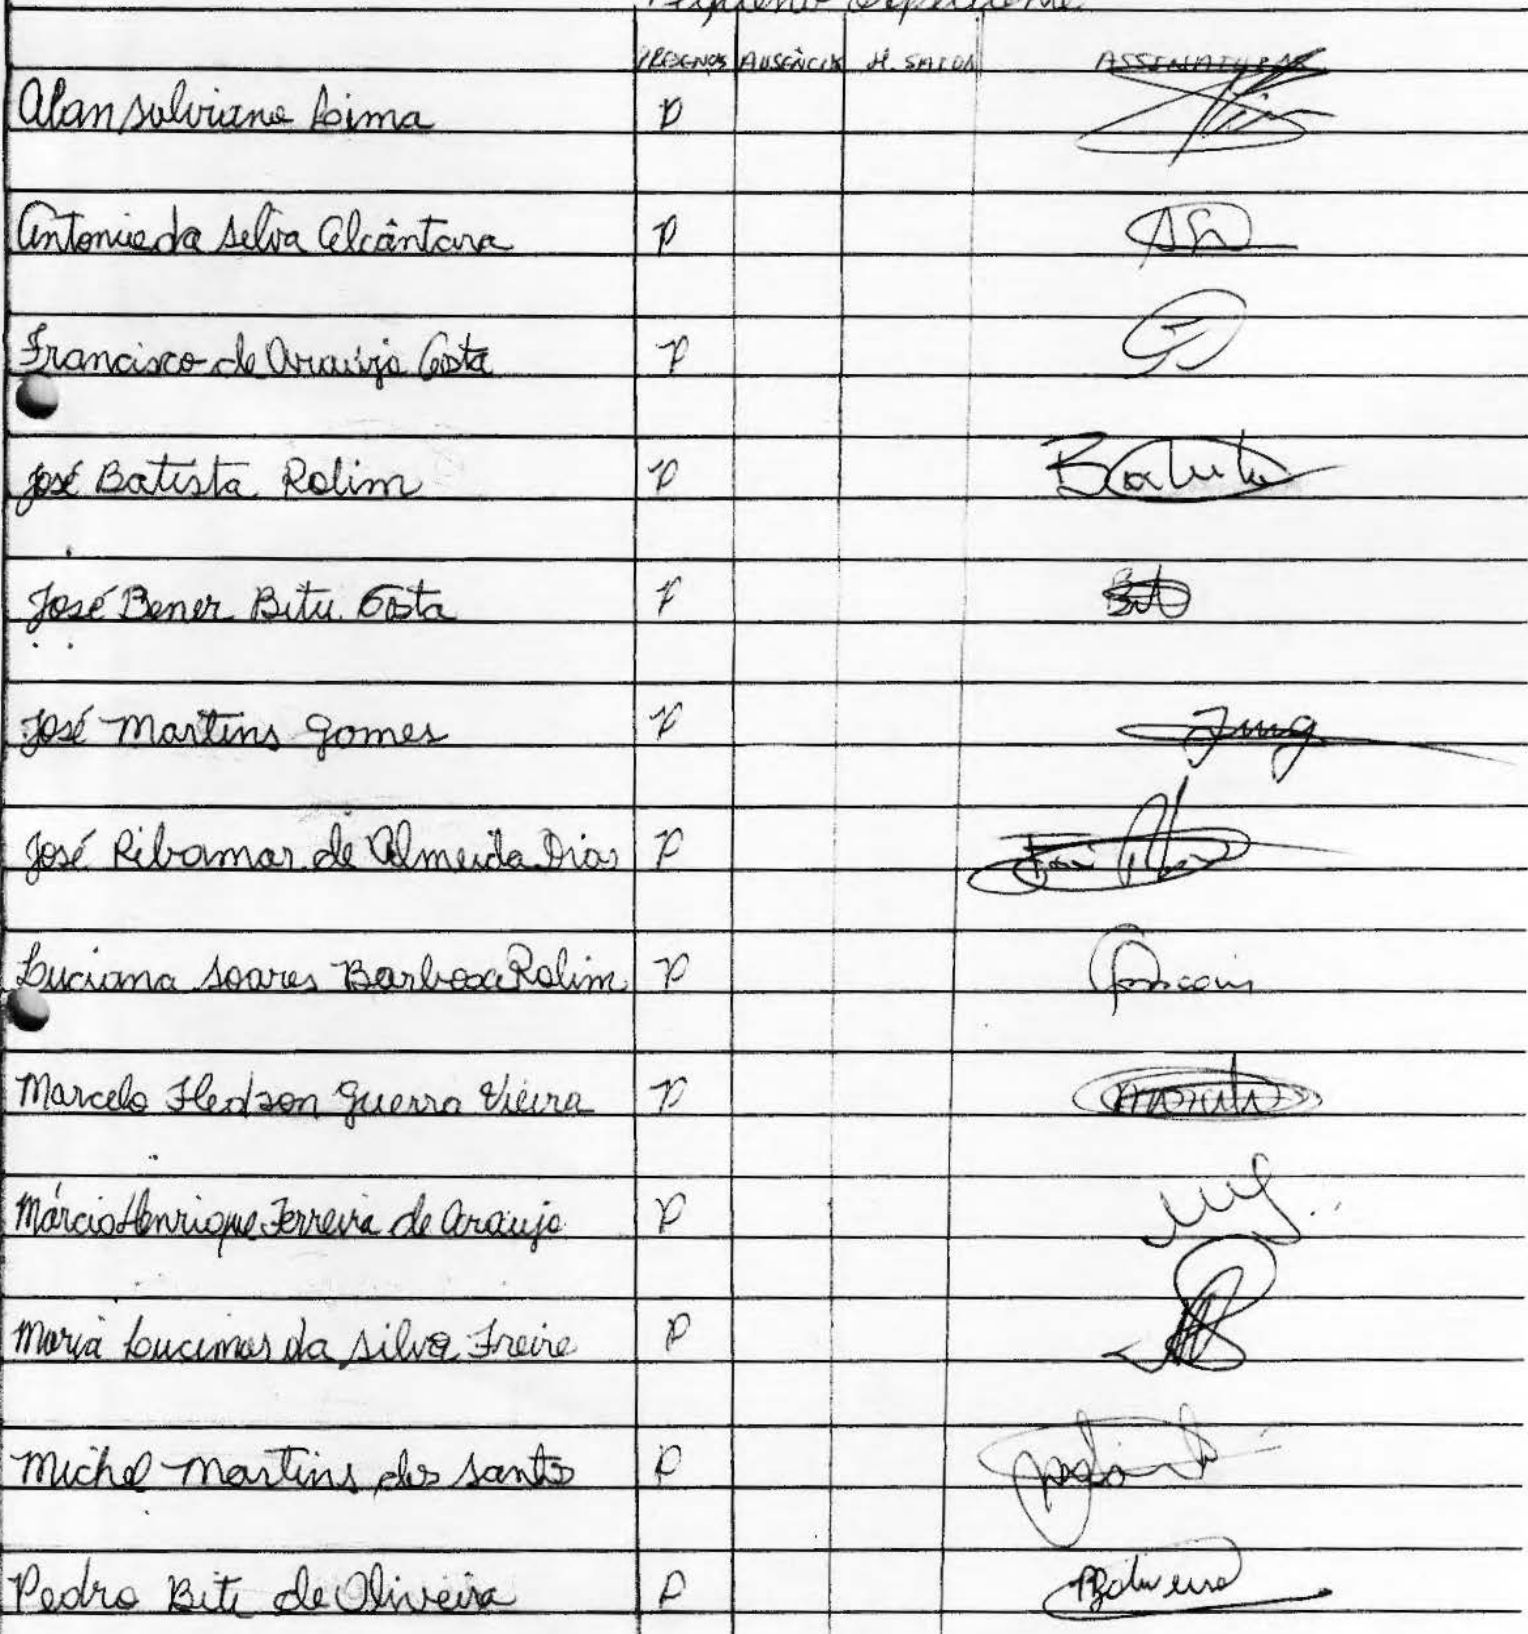 Pequeno Expediente
PRESENÇA AUSÊNCIA H. SAIDA ASSINATURAS
Alan Salviano Lima P
Antonio da Silva Alcântara P
Francisco de Araújo Costa P
José Batista Rolim P Batista
José Bener Bitu Costa P Bitu
José Martins Gomes P Jmg
José Ribamar de Almeida Dias P
Luciana Soares Barbosa Rolim P
Marcelo Fledson Guerra Vieira P Marcelo
Márcio Henrique Ferreira de Araujo P
Maria Lucimar da Silva Freire P
Michel Martins dos Santos P
Pedro Bitu de Oliveira P PBOliveira